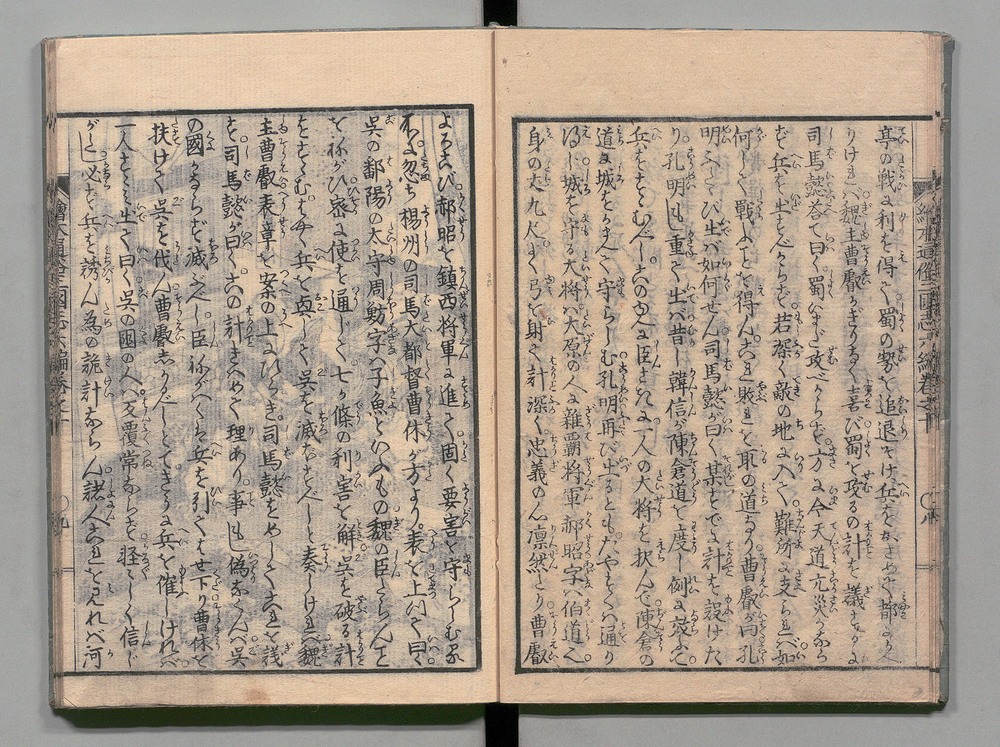 亭の戦に利を得て蜀の勢を追退け兵をおさめて都にかへ
りければ魏主曹叡かぎりなく喜び蜀を攻るの計を議するに
司馬懿答て曰く蜀いまだ攻べからず方に今天道亢炎なら
ず兵を出すべからず若深く敵の地に入て難所に支られば如
何して戦ふことを得んこれ敗を取の道なり曹叡が曰孔
明ふたゝび出ば如何せん司馬懿が曰く某すでに計を設けた
り孔明もし重て出ば昔し韓信が陳倉道を度し例に效ふて
兵をすゝむべしこのゆへに臣さきに一人の大将を択んで陳倉の
道に城をかまへて守らしむ孔明再び出るともたやすくは通り
得じ城を守る大将は大原の人雑覇将軍郝昭字は伯道と
身の丈九尺よく弓を射て計深く忠義の心凛然たり曹叡
よろこび郝昭を鎮西将軍に進て固く要害を守らしむる
処に忽ち楊州の司馬大都督曹休が方より表を上りて曰く
呉の鄱陽の太守周魴字は子魚といふもの魏の臣とならんこと
を祢がひ密に使を通じて七か條の利害を解呉を破る計
をすゝむはやく兵を起して呉を滅すべしと奏しければ魏
主曹叡表章を案の上にひらき司馬懿をめしてこれを議
す司馬懿が曰くこの計きはめて理あり事もし偽なくんば呉
の國かならず滅ぶべし臣祢がはくは兵を引てはせ下り曹休を
扶けて呉を伐ん曹叡しかるべしとてまさに兵を催しければ
一人すゝみ出て曰く呉の國の人反覆常ならず軽々しく信じ
がたし必ず兵を誘ん為の詭計ならん諸人これをみれば河
繪本通俗三國志六編巻之十
繪本通俗三國志六編巻之十
〇九